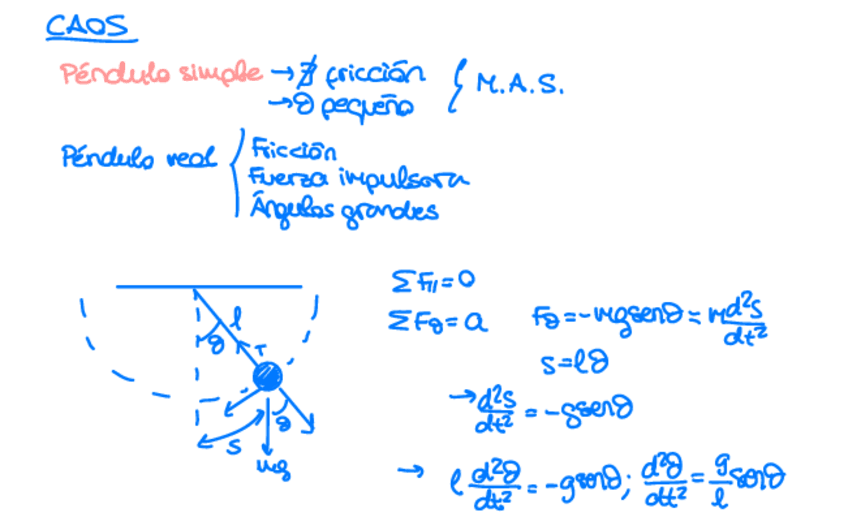 CAOS
Péndulo simple → ∄ fricción
→ θ pequeño
} M.A.S.
Péndulo real { Fricción
Fuerza impulsora
Ángulos grandes
l
θ
T
θ
S
mg
ΣF∥=0
ΣFθ=a Fθ=-mgsenθ=m d²s/dt²
s=lθ
→ d²s/dt² = -gsenθ
→ l d²θ/dt² = -gsenθ; d²θ/dt² = g/l senθ